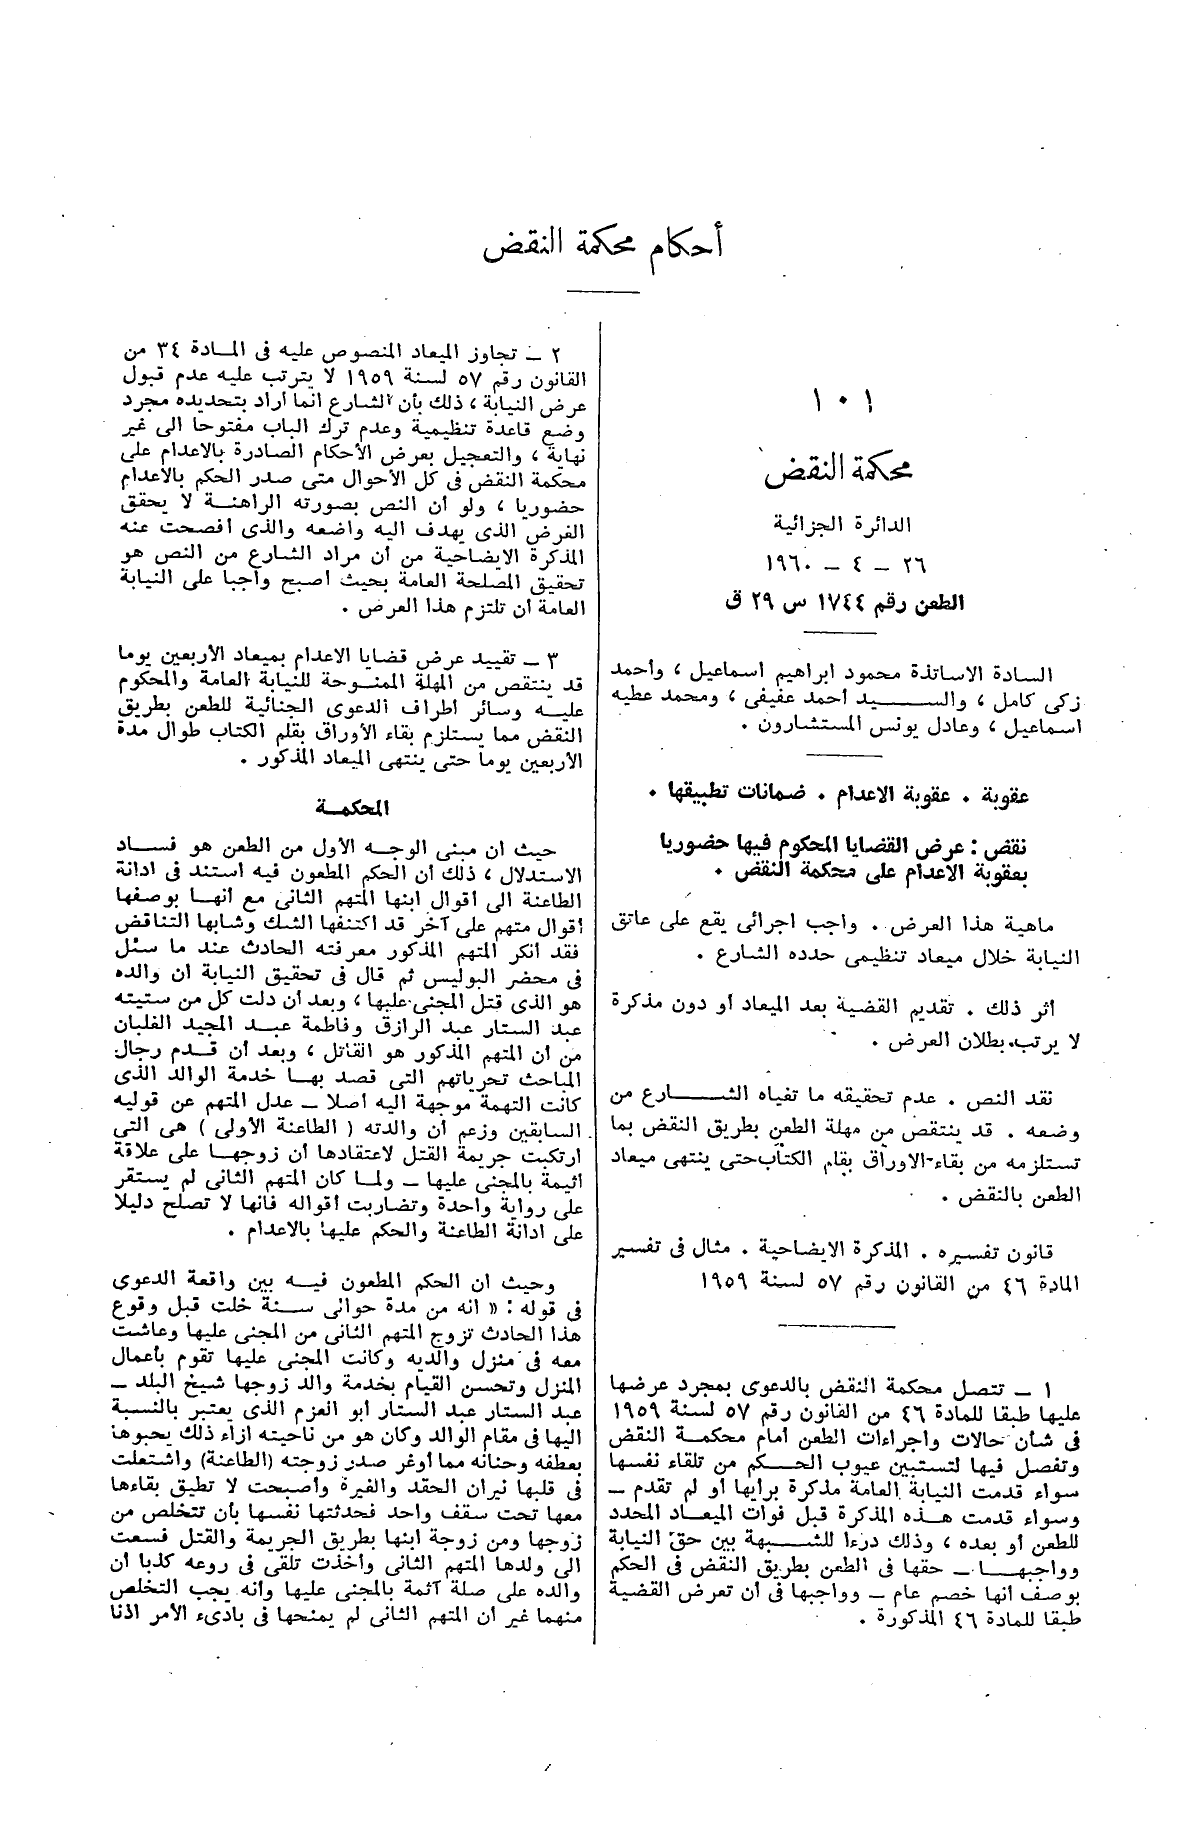 أحكام محكمة النقض
١٠١
محكمة النقض
الدائرة الجزائية
٢٦ – ٤ – ١٩٦٠
الطعن رقم ١٧٤٤ س ٢٩ ق
السادة الاساتذة محمود ابراهيم اسماعيل ، وأحمد
زكى كامل ، والسيد أحمد عفيفى ، ومحمد عطيه
اسماعيل ، وعادل يونس المستشارون .
عقوبة . عقوبة الاعدام . ضمانات تطبيقها .
نقض : عرض القضايا المحكوم فيها حضوريا
بعقوبة الاعدام على محكمة النقض .
ماهية هذا العرض . واجب اجرائى يقع على عاتق
النيابة خلال ميعاد تنظيمى حدده الشارع .
أثر ذلك . تقديم القضية بعد الميعاد أو دون مذكرة
لا يرتب بطلان العرض .
نقد النص . عدم تحقيقه ما تغياه الشارع من
وضعه . قد ينتقص من مهلة الطعن بطريق النقض بما
تستلزمه من بقاء الاوراق بقلم الكتاب حتى ينتهى ميعاد
الطعن بالنقض .
قانون تفسيره . المذكرة الايضاحية . مثال فى تفسير
المادة ٤٦ من القانون رقم ٥٧ لسنة ١٩٥٩
١ – تتصل محكمة النقض بالدعوى بمجرد عرضها
عليها طبقا للمادة ٤٦ من القانون رقم ٥٧ لسنة ١٩٥٩
فى شأن حالات واجراءات الطعن أمام محكمة النقض
وتفصل فيها لتستبين عيوب الحكم من تلقاء نفسها
سواء قدمت النيابة العامة مذكرة برأيها أو لم تقدم –
وسواء قدمت هذه المذكرة قبل فوات الميعاد المحدد
للطعن أو بعده ، وذلك درءا للشبهة بين حق النيابة
وواجبها – حقها فى الطعن بطريق النقض فى الحكم
بوصف أنها خصم عام – وواجبها فى أن تعرض القضية
طبقا للمادة ٤٦ المذكورة .
٢ – تجاوز الميعاد المنصوص عليه فى المادة ٣٤ من
القانون رقم ٥٧ لسنة ١٩٥٩ لا يترتب عليه عدم قبول
عرض النيابة ، ذلك بأن الشارع انما أراد بتحديده مجرد
وضع قاعدة تنظيمية وعدم ترك الباب مفتوحا الى غير
نهاية ، والتعجيل بعرض الأحكام الصادرة بالاعدام على
محكمة النقض فى كل الأحوال متى صدر الحكم بالاعدام
حضوريا ، ولو أن النص بصورته الراهنة لا يحقق
الغرض الذى يهدف اليه واضعه والذى أفصحت عنه
المذكرة الايضاحية من أن مراد الشارع من النص هو
تحقيق المصلحة العامة بحيث أصبح واجبا على النيابة
العامة أن تلتزم هذا العرض .
٣ – تقييد عرض قضايا الاعدام بميعاد الأربعين يوما
قد ينتقص من المهلة الممنوحة للنيابة العامة والمحكوم
عليه وسائر أطراف الدعوى الجنائية للطعن بطريق
النقض مما يستلزم بقاء الأوراق بقلم الكتاب طوال مدة
الأربعين يوما حتى ينتهى الميعاد المذكور .
المحكمة
حيث ان مبنى الوجه الأول من الطعن هو فساد
الاستدلال ، ذلك أن الحكم المطعون فيه استند فى ادانة
الطاعنة الى أقوال ابنها المتهم الثانى مع أنها بوصفها
أقوال متهم على آخر قد اكتنفها الشك وشابها التناقض
فقد أنكر المتهم المذكور معرفته الحادث عند ما سئل
فى محضر البوليس ثم قال فى تحقيق النيابة ان والده
هو الذى قتل المجنى عليها ، وبعد أن دلت كل من ستيته
عبد الستار عبد الرازق وفاطمة عبد المجيد الغلبان
من أن المتهم المذكور هو القاتل ، وبعد أن قدم رجال
المباحث تحرياتهم التى قصد بها خدمة الوالد الذى
كانت التهمة موجهة اليه أصلا – عدل المتهم عن قوليه
السابقين وزعم أن والدته ( الطاعنة الأولى ) هى التى
ارتكبت جريمة القتل لاعتقادها أن زوجها على علاقة
أثيمة بالمجنى عليها – ولما كان المتهم الثانى لم يستقر
على رواية واحدة وتضاربت أقواله فانها لا تصلح دليلا
على ادانة الطاعنة والحكم عليها بالاعدام .
وحيث ان الحكم المطعون فيه بين واقعة الدعوى
فى قوله : « انه من مدة حوالى سنة خلت قبل وقوع
هذا الحادث تزوج المتهم الثانى من المجنى عليها وعاشت
معه فى منزل والديه وكانت المجنى عليها تقوم بأعمال
المنزل وتحسن القيام بخدمة والد زوجها شيخ البلد –
عبد الستار عبد الستار أبو العزم الذى يعتبر بالنسبة
اليها فى مقام الوالد وكان هو من ناحيته ازاء ذلك يحبوها
بعطفه وحنانه مما أوغر صدر زوجته (الطاعنة) واشتعلت
فى قلبها نيران الحقد والغيرة وأصبحت لا تطيق بقاءها
معها تحت سقف واحد فحدثتها نفسها بأن تتخلص من
زوجها ومن زوجة ابنها بطريق الجريمة والقتل فسعت
الى ولدها المتهم الثانى وأخذت تلقى فى روعه كذبا ان
والده على صلة آثمة بالمجنى عليها وأنه يجب التخلص
منهما غير أن المتهم الثانى لم يمنحها فى بادىء الأمر اذنا